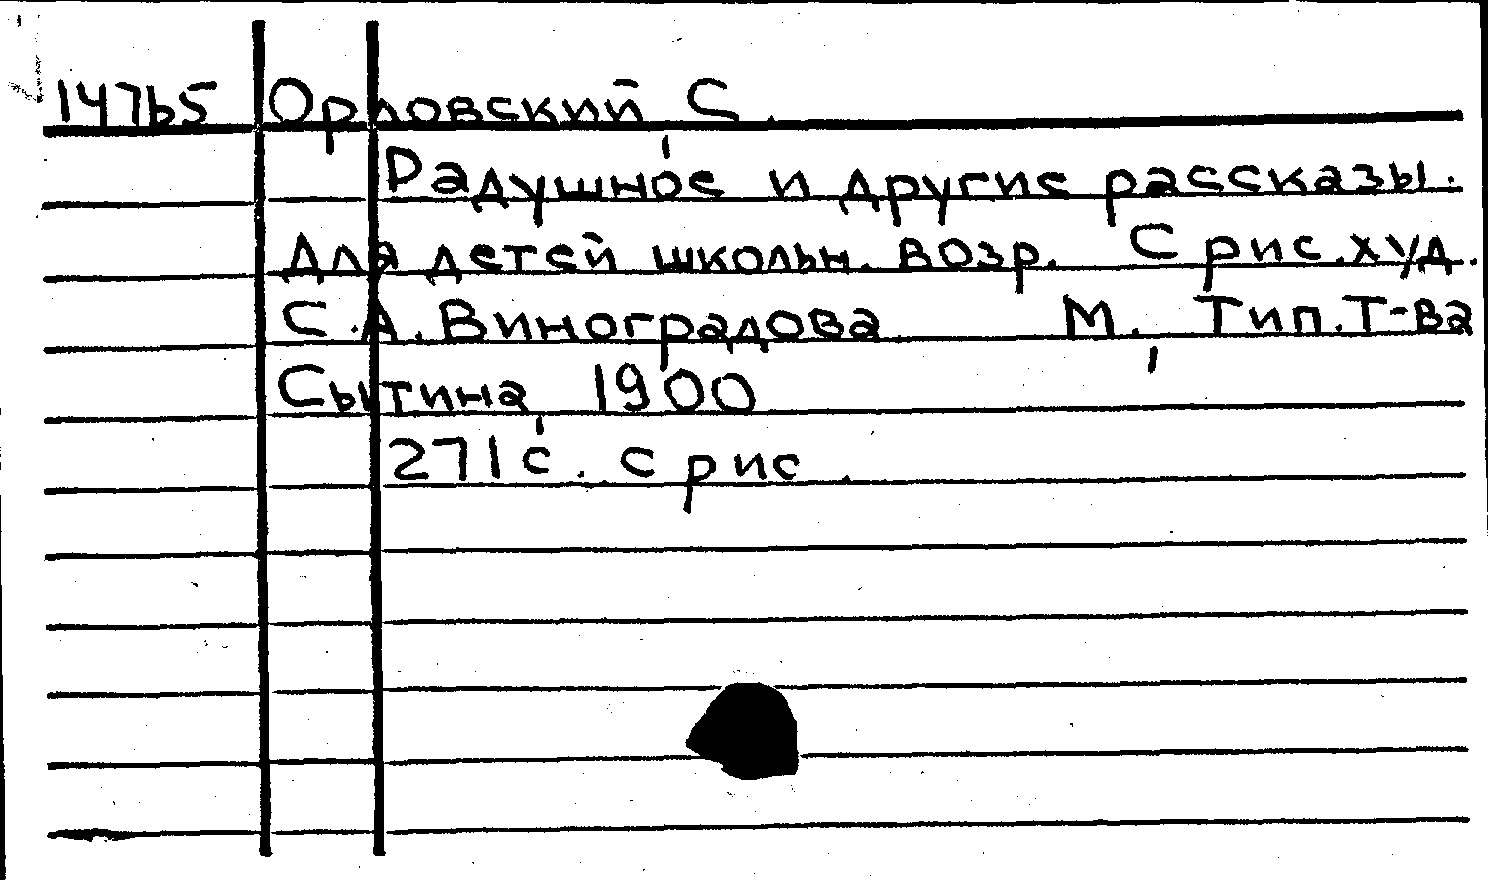 147ь5 Орловский С.
Радушное и другие рассказы.
Для детей школьн. возр. С рис. худ.
С.А. Виноградова М., Тип. Т-ва
Сытина, 1900
271 с. с рис.